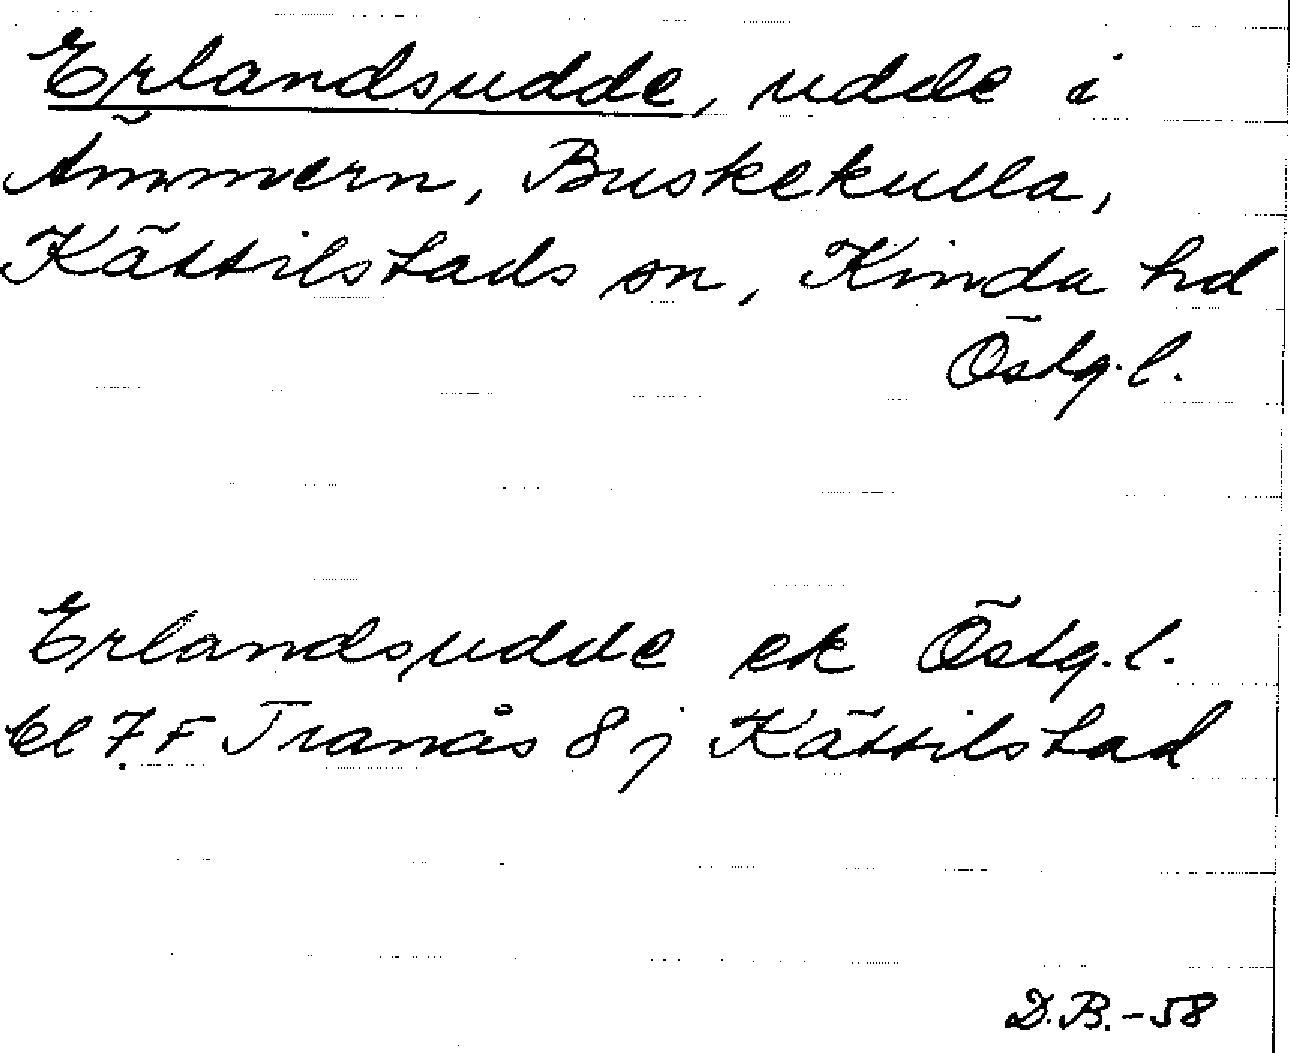 Erlandsudde, udde i
Ämmern, Buskekulla,
Kättilstads sn, Kinda hd
Östg.l.
Erlandsudde ek Östg.l.
bl 7F Tranås 8 j Kättilstad
D.B.-58